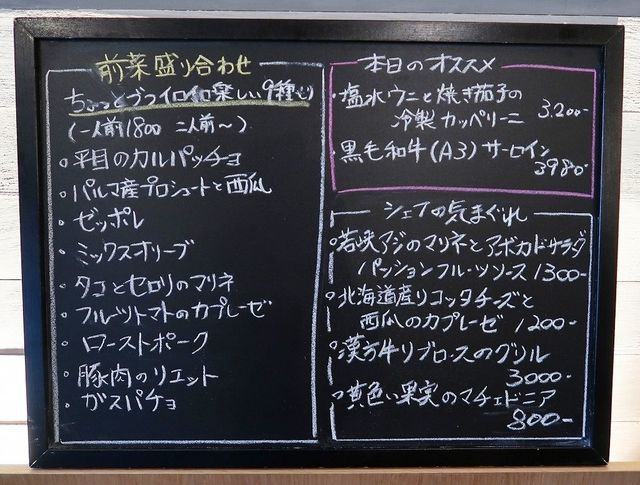 前菜盛り合わせ
ちょっとづつイロイロ楽しい9種盛り
(一人前1800 二人前〜)
・平目のカルパッチョ
・パルマ産プロシュートと西瓜
・ゼッポレ
・ミックスオリーブ
・タコとセロリのマリネ
・フルーツトマトのカプレーゼ
・ローストポーク
・豚肉のリエット
・ガスパチョ
本日のオススメ
・塩水ウニと焼き茄子の
冷製カッペリーニ 3,200-
・黒毛和牛(A3)サーロイン
3980-
シェフの気まぐれ
・若峡アジのマリネとアボカドサラダ
パッションフルーツソース 1300-
・北海道産リコッタチーズと
西瓜のカプレーゼ 1200-
・漢方牛リブロースのグリル
3000-
・黄色い果実のマチェドニア
800-